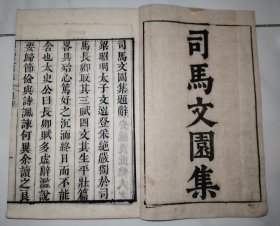 司馬文園集
司馬文園集題辭
梁昭明太子文選登采絕嚴獨於司
馬長卿取其三賦四文其生平壯篇
略具殆心篤好之沉湎終日而不能
舍也太史公曰長卿賦多虛辭濫說
要歸節儉與詩諷諫何異余讀之良